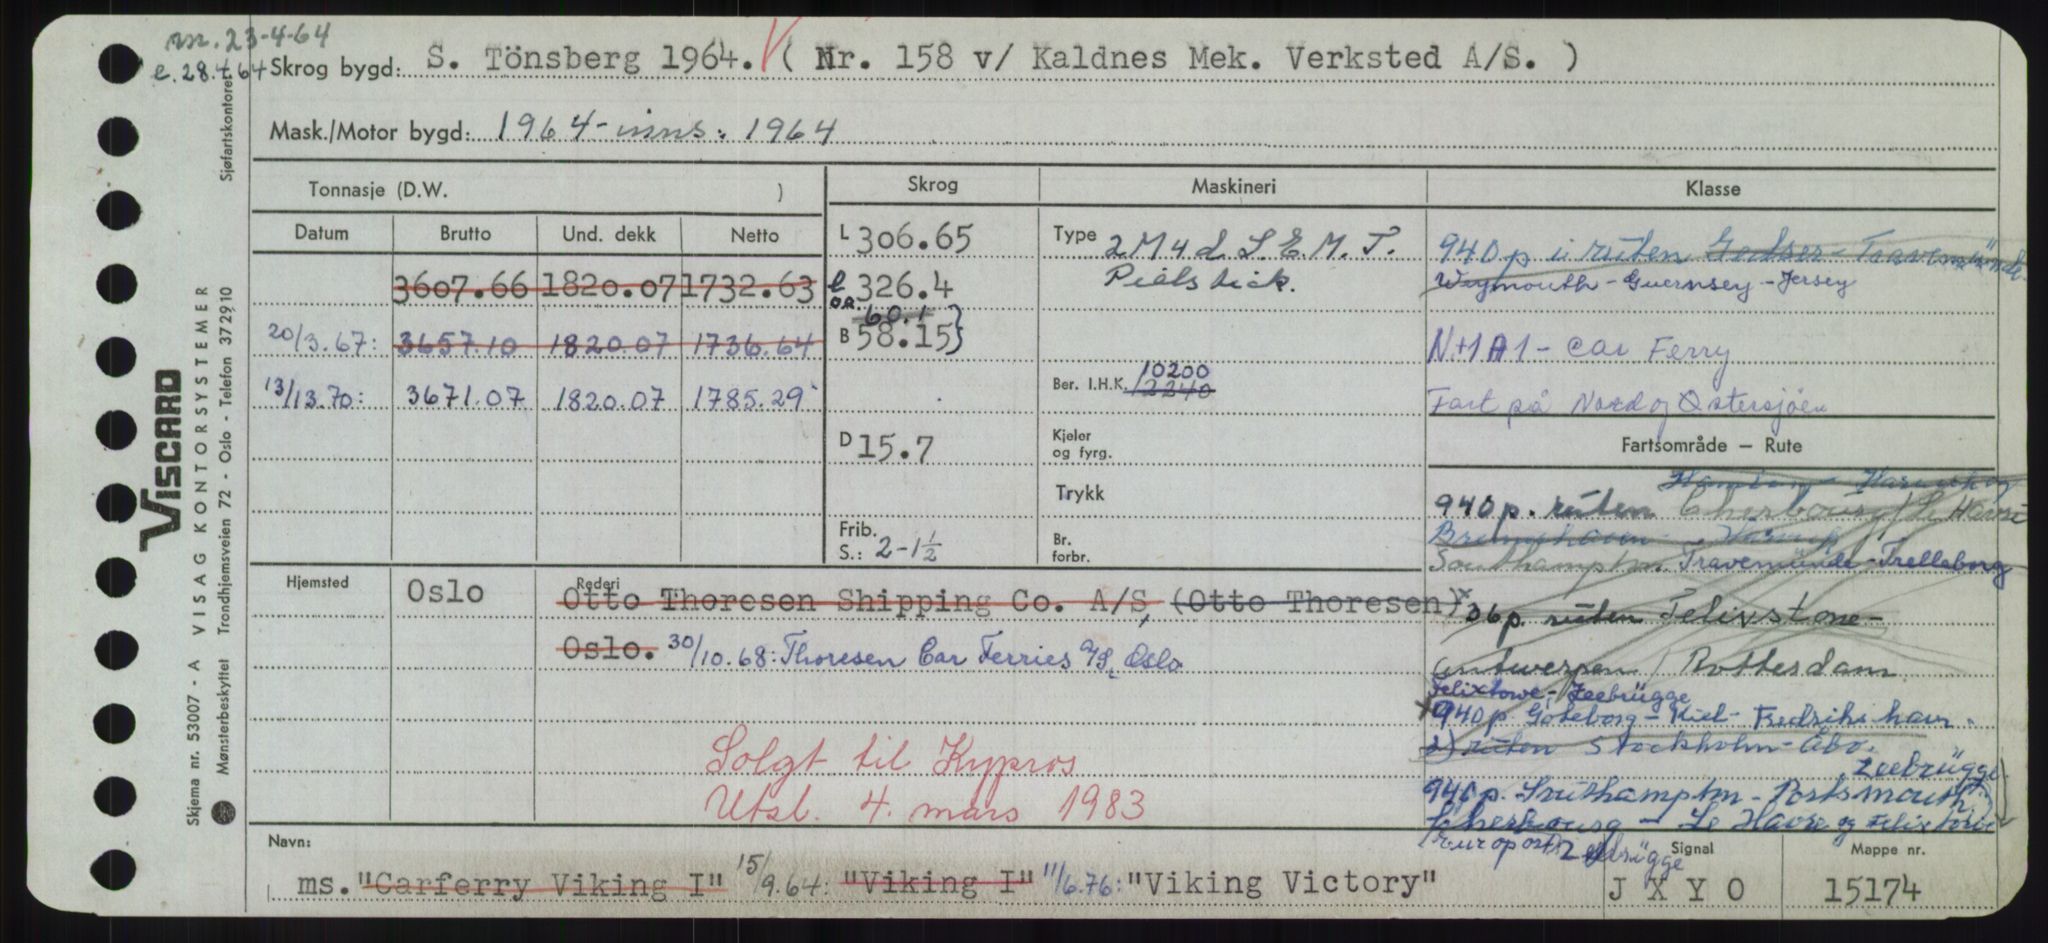 m. 23-4-64
e. 28.4.64
Skrog bygd: S. Tönsberg 1964. V ( Nr. 158 v/ Kaldnes Mek. Verksted A/S. )
Mask./Motor bygd: 1964 - inns: 1964
Tonnasje (D.W. ) Skrog Maskineri Klasse
Datum Brutto Und. dekk Netto
3607.66 1820.07 1732.63
20/3.67: 3657.10 1820.07 1736.64
13/13.70: 3671.07 1820.07 1785.29
L 306.65
l 326.4
OA.
60.1
B 58.15}
D 15.7
Frib.
S.: 2-1½
Type 2 M 4 d S.E.M.T.
Pielstick.
Ber. I.H.K. 10200
12240
Kjeler
og fyrg.
Trykk
Br.
forbr.
940 p i ruten Gedser - Travemünde
Weymouth - Guernsey - Jersey
N+1A1 - Car Ferry
Fart på Nord og Østersjøen
Fartsområde — Rute
940 p. ruten Cherbourg / Le Havre
Southampton Travemünde - Trelleborg
36 p. ruten Felixstone -
Antwerpen / Rotterdam
Felixtowe - Zeebrügge
940 p Göteborg - Kiel - Fredrikshavn.
2) ruten Stockholm - Åbo.
Zeebrügge
940 p. Southampton - Portsmouth
Cherbourg - Le Havre og Felixtowe
Zeebrügge
Hjemsted Oslo
Rederi
Otto Thoresen Shipping Co. A/S (Otto Thoresen)
Oslo. 30/10.68: Thoresen Car Ferries A/S, Oslo
Solgt til Kypros
Utsl. 4. mars 1983
Navn:
ms. "Carferry Viking I" 15/9.64: "Viking I" 11/6.76: "Viking Victory"
Signal
J X Y O
Mappe nr.
15174
VISCARD
Skjema nr. 53007 - A VISAG KONTORSYSTEMER
Mønsterbeskyttet Trondhjemsveien 72 - Oslo - Telefon 37 29 10
Sjøfartskontoret